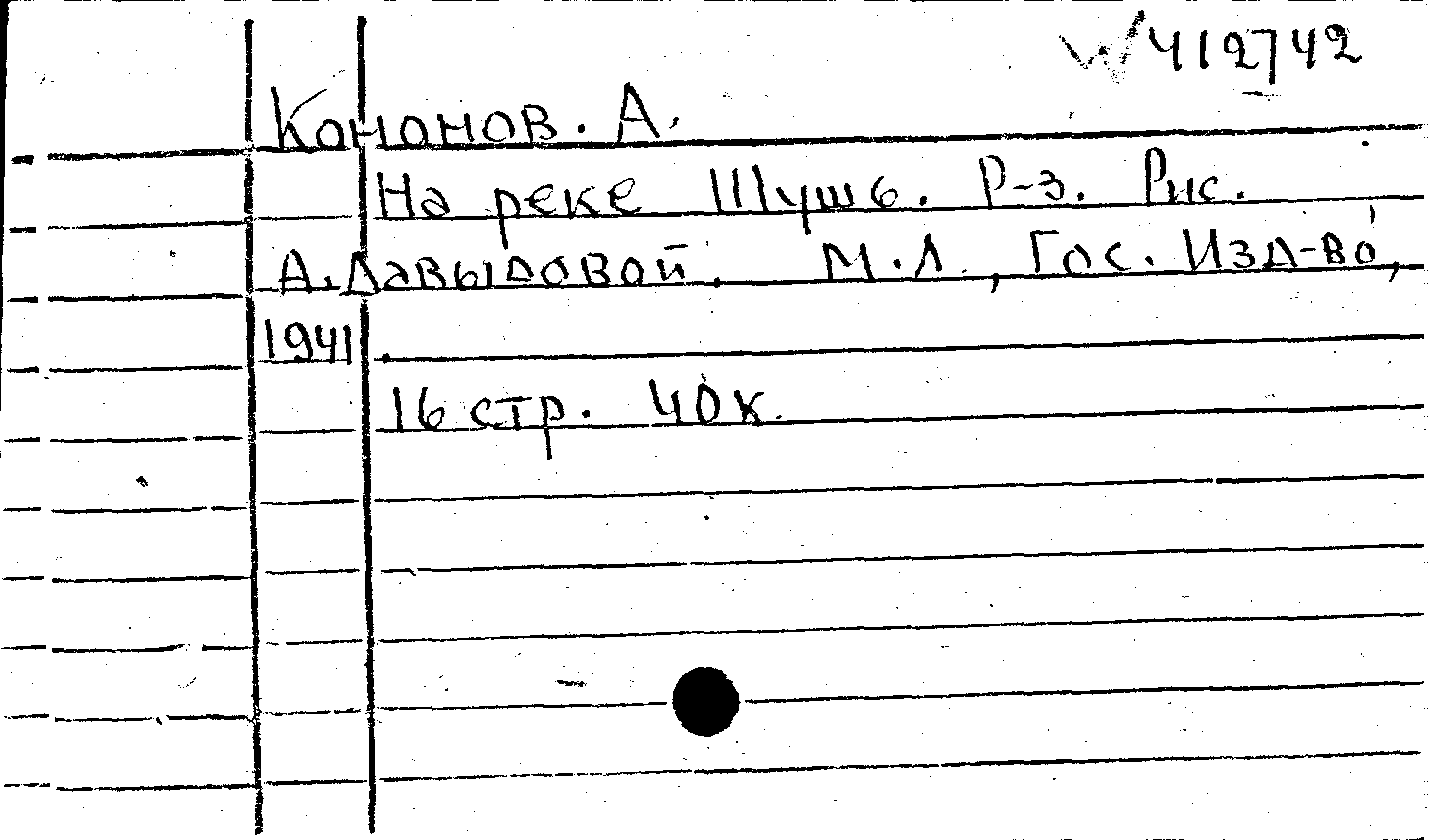 W 412742
Кононов. А.
На реке Шушь. Р-з. Рис.
А. Давыдовой. М.Л., Гос. Изд-во,
1941.
16 стр. 40 к.